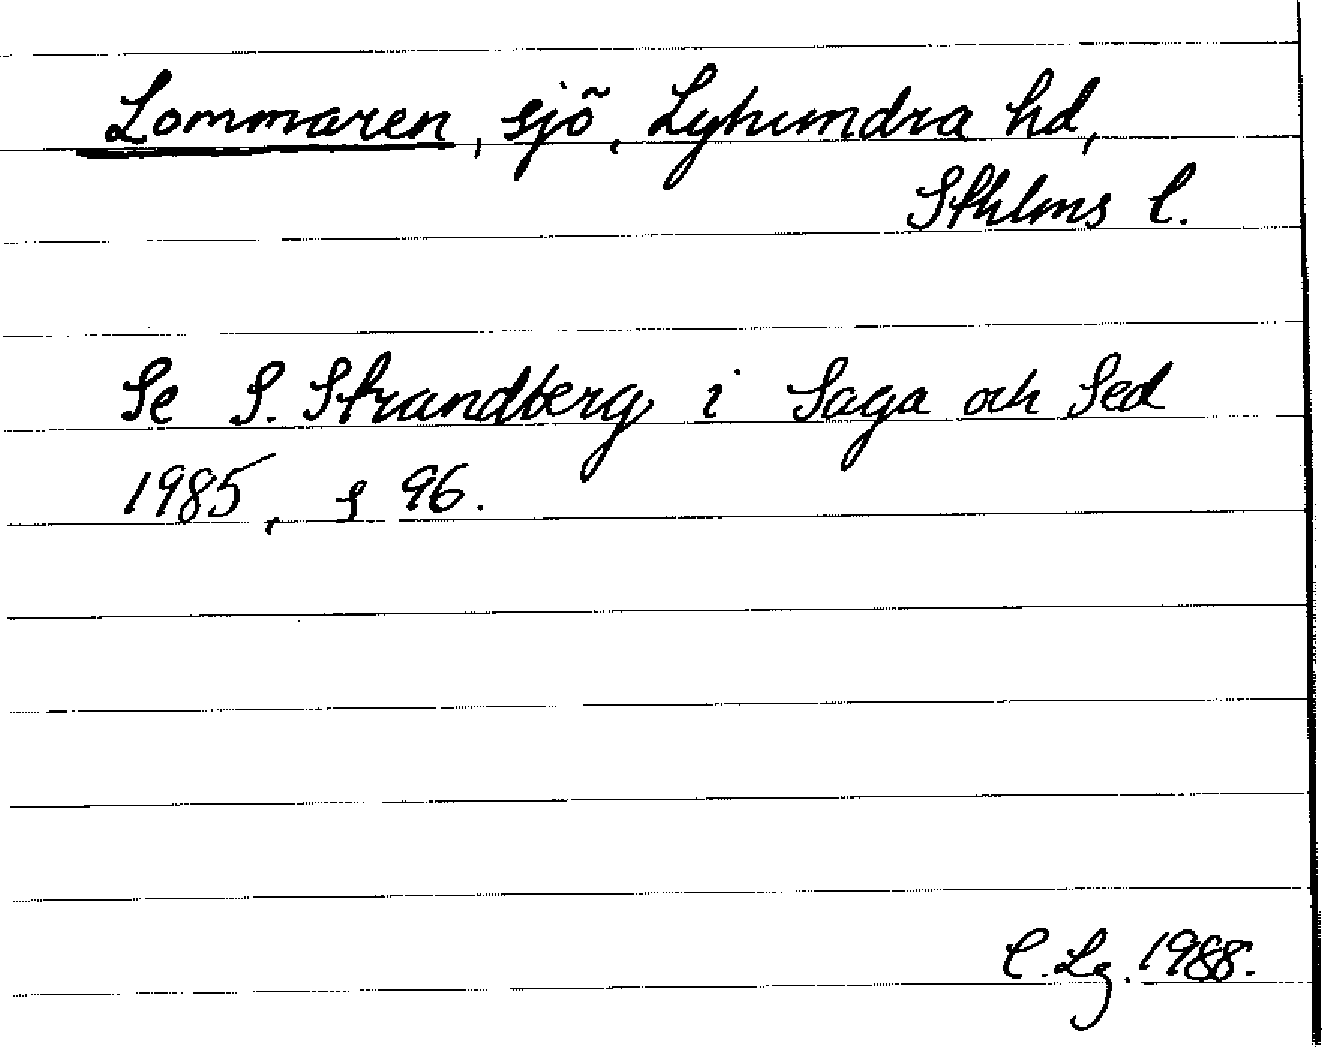 Lommaren, sjö, Lyhundra hd,
Sthlms l.
Se S. Strandberg i Saga och Sed
1985, s 96.
C. Lg. 1988.